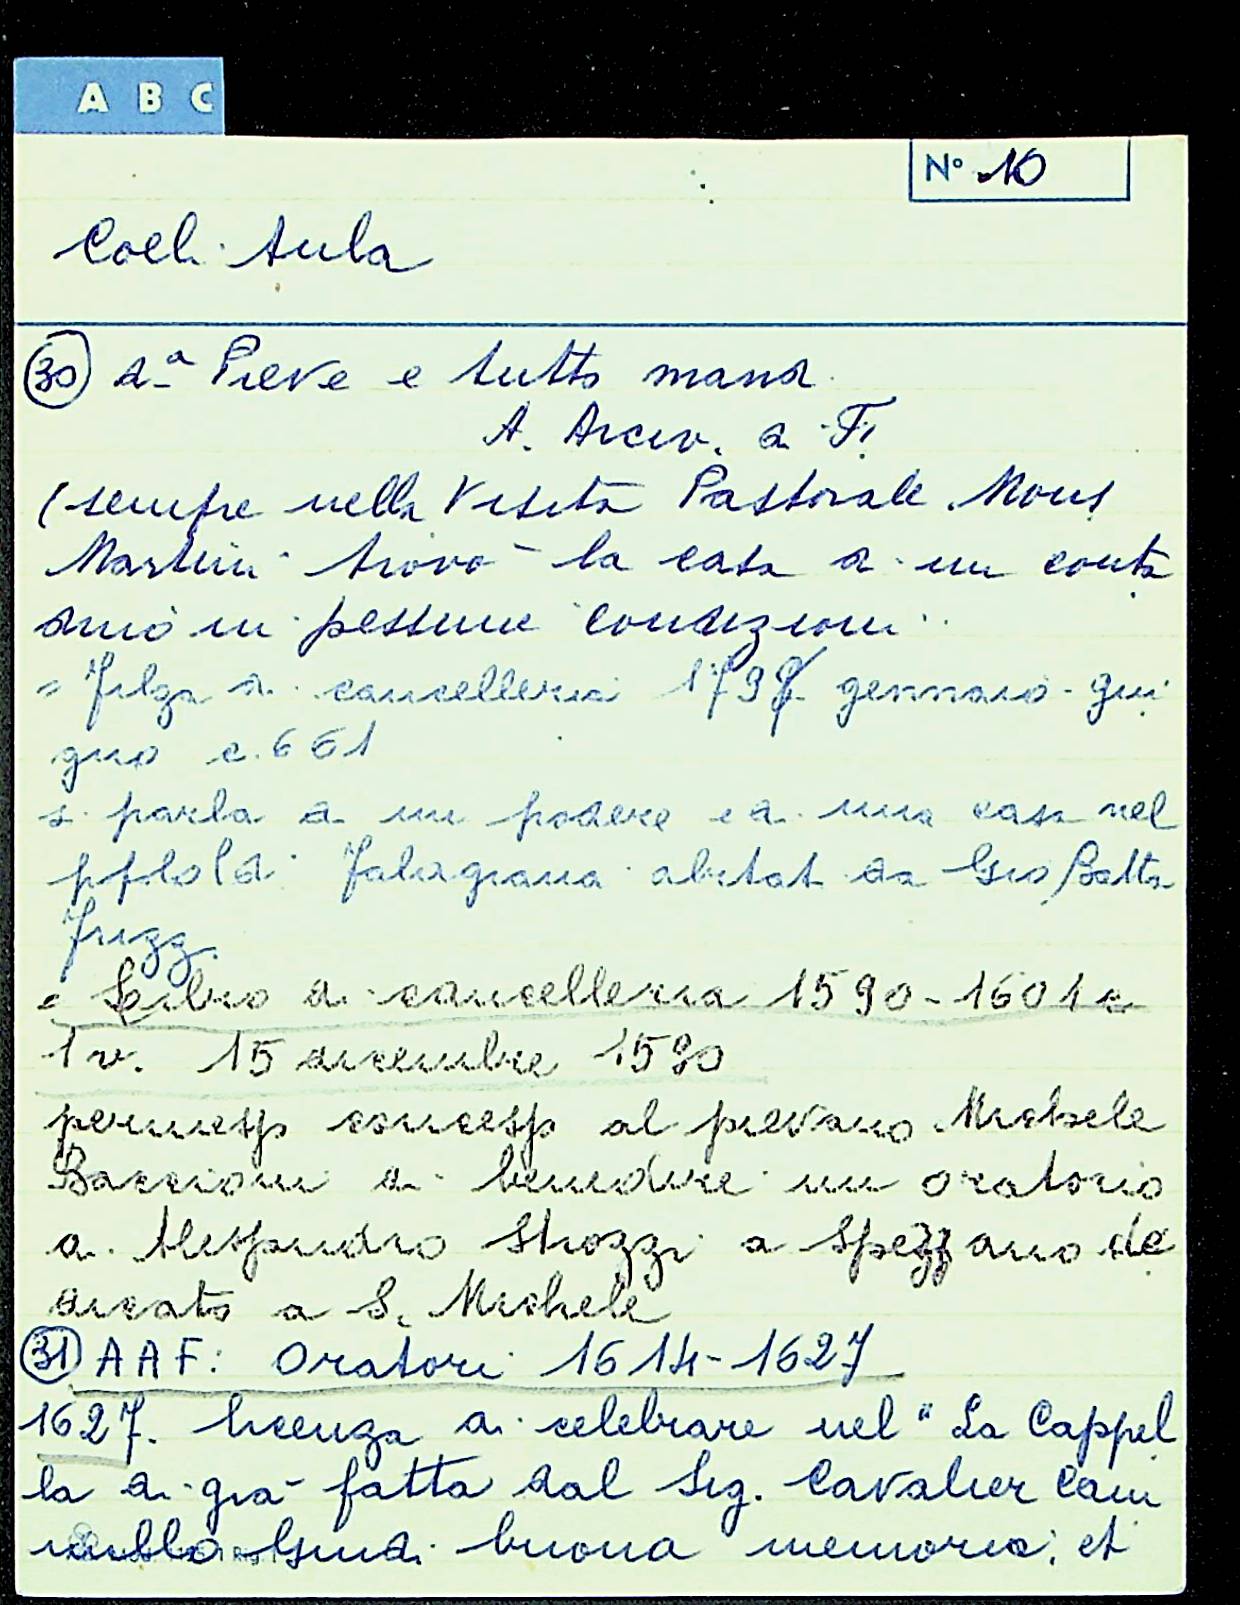 A B C
N° 10
Coeli Aula
30 d.ª Pieve e tutto mand.
A. Arciv. di Fi
(sempre nella Visita Pastorale Mons
Martini trovò la casa di un conta
dino in pessime condizioni
= Filza di cancelleria 179 gennaio - giu
gno c. 661
si parla di un podere e di una casa nel
di Fabagiana abitat da Gio Batta
Frizzi
= Libro di cancelleria 1590-1601 c
1 v. 15 dicembre 1590
permesso concesso al pievano Michele
Baccioni di benedire un oratorio
di Alessandro Strozzi a Spezzano de
dicato a S. Michele
31 AAF: Oratori 1614-1627
1627. licenza di celebrare nel "La Cappel
la di già fatta dal Sig. Cavalier Cam
millo Guidi buona memoria; et